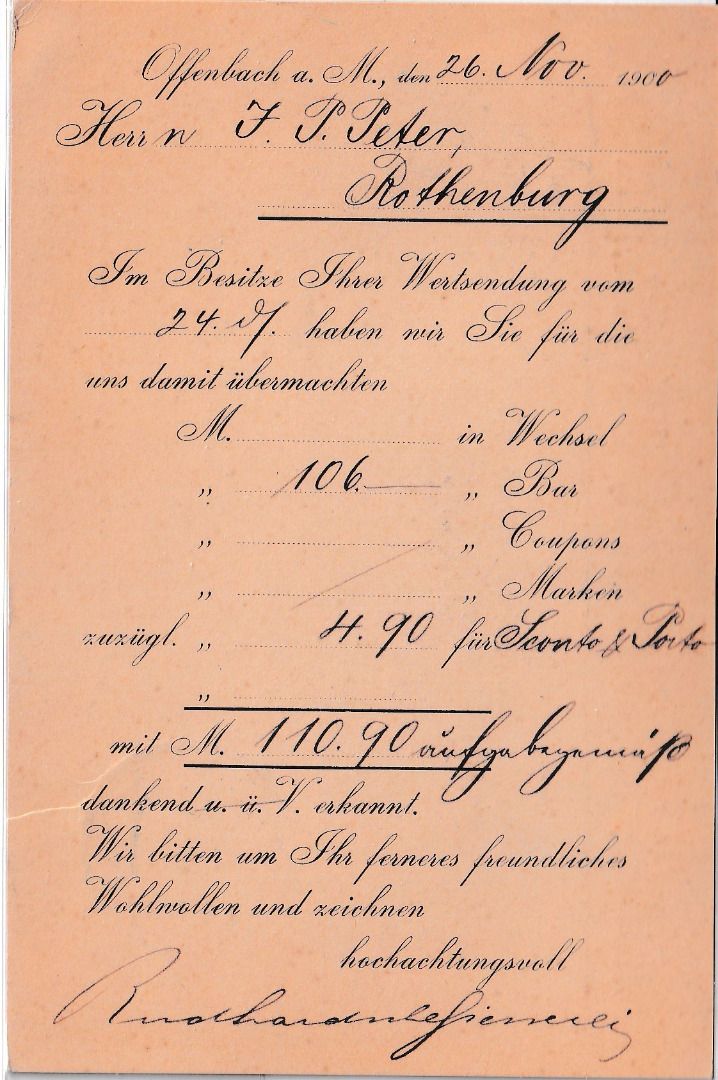 Offenbach a. M., den 26. Nov. 1900
Herrn J. P. Peter,
Rothenburg
Im Besitze Ihrer Wertsendung vom
24. d/. haben wir Sie für die
uns damit übermachten
M. in Wechsel
„ 106.— „ Bar
„ „ Coupons
„ „ Marken
zuzügl. „ 4.90 für Sconto & Porto
„
mit M. 110.90 aufgabegemäß
dankend u. ü. V. erkannt.
Wir bitten um Ihr ferneres freundliches
Wohlwollen und zeichnen
hochachtungsvoll
Rudhard'sche Giesserei